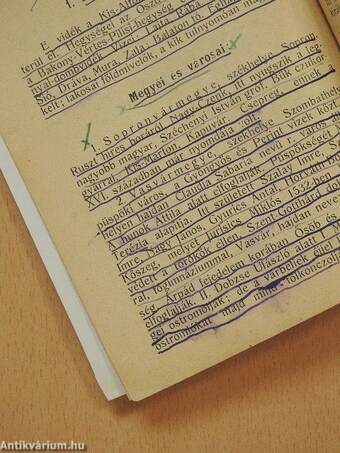 E vidék a Kis-Alföld
terül el. Hegységei az Oszt
a Bakony-Vértes-Pilisi hegység
Sió, Dráva, Mura, Zala; Balaton tó. Éghajlata
két; lakosai földmívelők, a kik túlnyomóan mag
Megyei és városai:
1. Sopronvármegye, székhelye Sopron.
Ruszt híres boráról, Nagy-Czenk, itt nyugszik a leg
nagyobb magyar, Széchenyi István gróf. Bük czukor
gyárral, Kis-Márton, Kapuvár, Csepreg, ennek a
XVI. században már nyomdája volt.
2. Vasvármegye, székhelye Szombathely
püspöki város, a Gyöngyös és Perint vizek közt
helyén hajdan Claudia Sabaria nevű r. város
A hunok Attila alatt elfoglalták. Püspökségét
Terézia alapítja. Itt született Szalay Imre, Sz
Imre, Nagy János, Gyurics Antal, Horváth
Kőszeg, melyet Jurisics Miklós 1532-ben
védett a törökök ellen. Szent-Gotthárd
ral, főgimnáziummal, Vasvár, hajdan neve
ség. Árpád fejedelem korában Ósöb és
elfoglalják. II. Dobzse Ulászló alatt
gel ostromolják; de a várbeliek
ostromlókat, majd mind
Antikvárium.hu